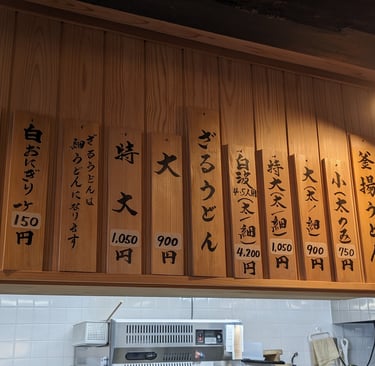 釜揚
小(太のみ) 750円
大(太・細) 900円
特大(太・細) 1,050円
白波 4.5人前 (太・細) 4,200円
ざるうどん
大 900円
特大 1,050円
ざるうどんは
細うどんになります
白おにぎり 一ヶ 150円